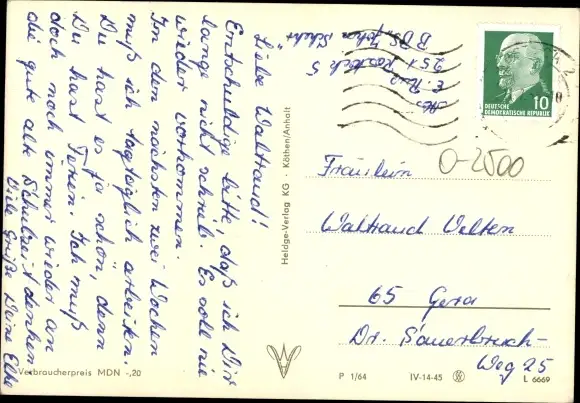 Liebe Waltraud!
Entschuldige bitte, daß ich Dir
lange nicht schrieb. Es soll nie
wieder vorkommen.
In den nächsten zwei Wochen
muß ich tagtäglich arbeiten.
Du hast es ja schön, denn
Du hast Ferien. Ich muß
doch noch immer wieder an
die gute alte Schulzeit denken.
Viele Grüße Deine Elke
Abs.
E.
251 Rostock 5
BBS John Schehr
DEUTSCHE
DEMOKRATISCHE REPUBLIK
10
0-2500
Fräulein
Waltraud Velten
65 Gera
Dr. Sauerbruch-
Weg 25
Heldge-Verlag KG · Köthen/Anhalt
Verbraucherpreis MDN -,20
P 1/64
IV-14-45
L 6669